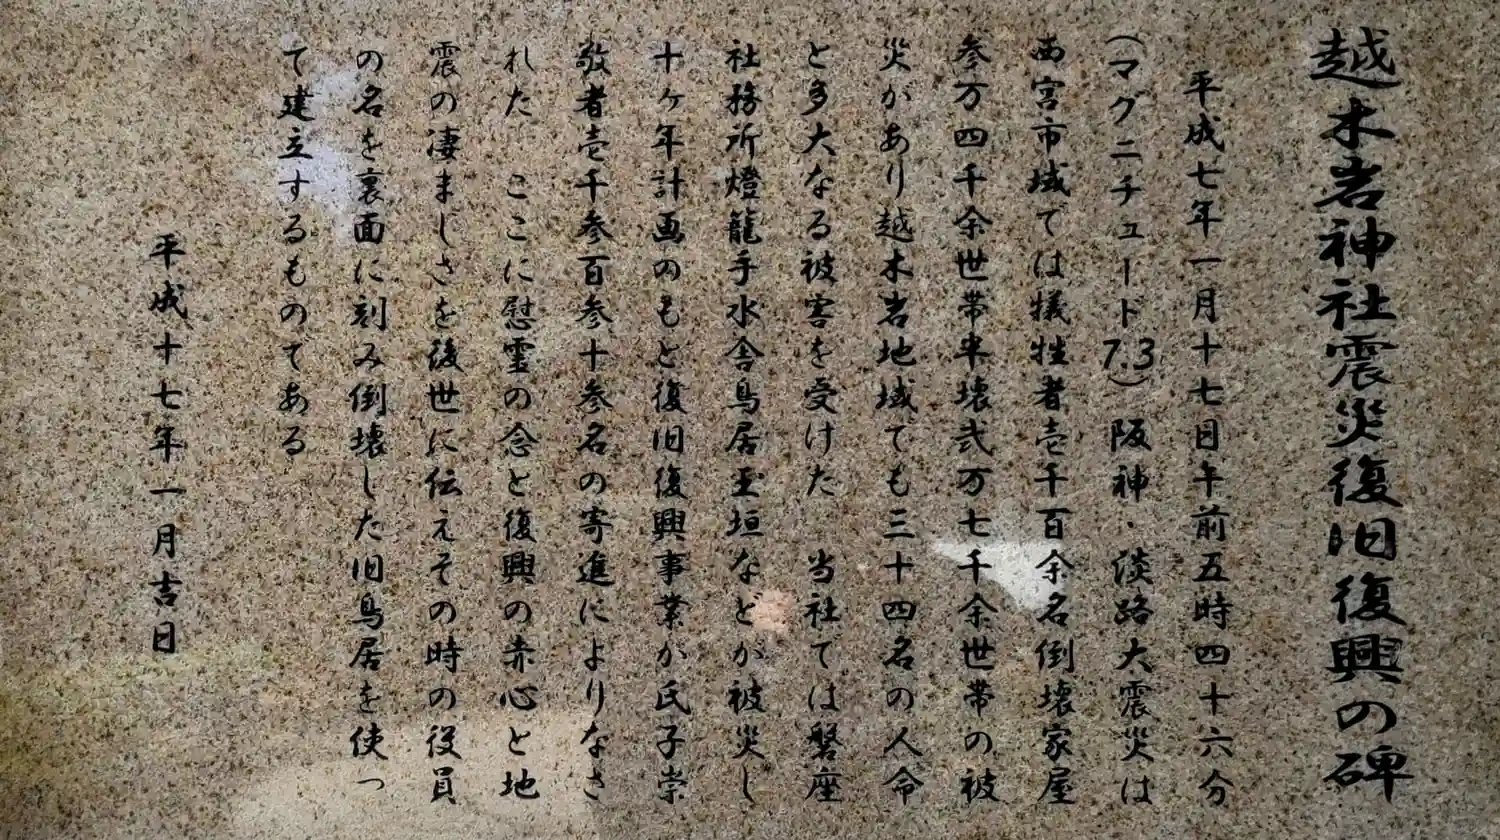 越木岩神社震災復旧復興の碑
平成七年一月十七日午前五時四十六分
(マグニチュード7.3)阪神・淡路大震災は
西宮市域では犠牲者壱千百余名倒壊家屋
参万四千余世帯半壊弐万七千余世帯の被
災があり越木岩地域ても三十四名の人命
と多大なる被害を受けた 当社ては磐座
社務所燈籠手水舎鳥居玉垣なとか被災し
十ヶ年計画のもと復旧復興事業か氏子崇
敬者壱千参百参十参名の寄進によりなさ
れた ここに慰霊の念と復興の赤心と地
震の凄ましさを後世に伝えその時の役員
の名を裏面に刻み倒壊した旧鳥居を使っ
て建立するものてある
平成十七年一月吉日